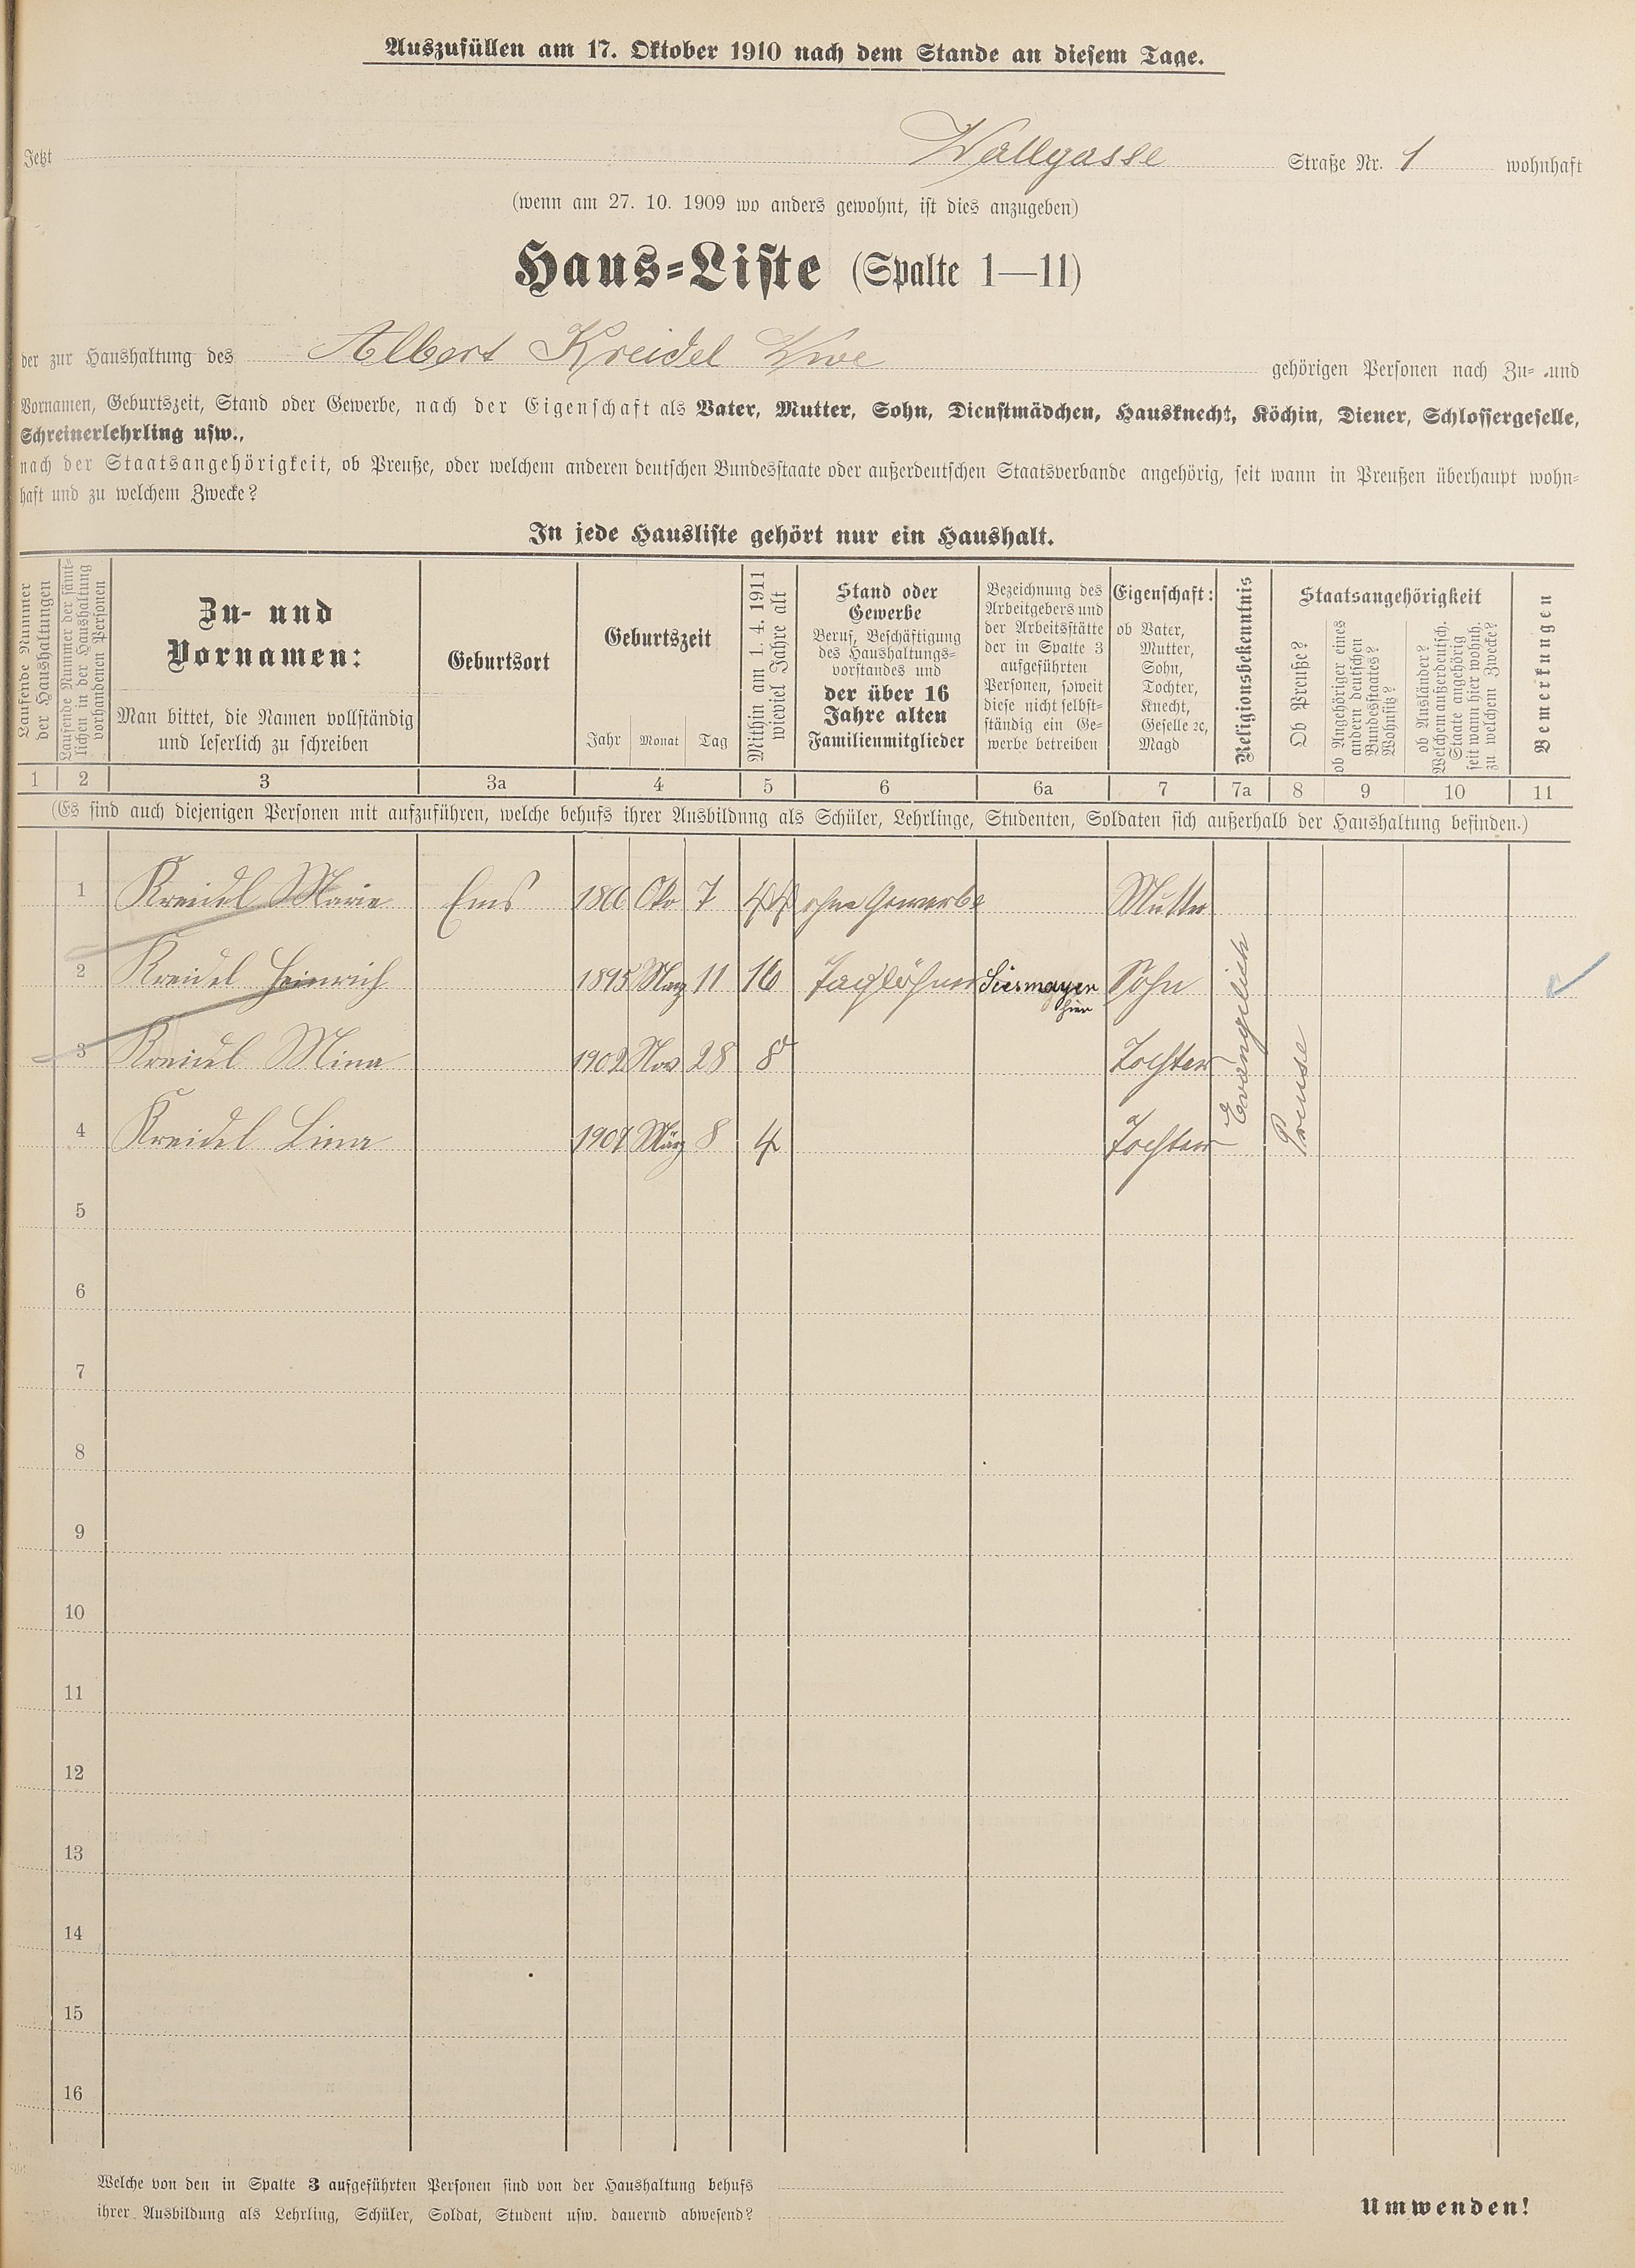 Auszufüllen am 17. Oktober 1910 nach dem Stande an diesem Tage.
Jetzt Wallgasse Straße Nr. 1 wohnhaft
(wenn am 27. 10. 1909 wo anders gewohnt, ist dies anzugeben)
Haus-Liste (Spalte 1—11)
der zur Haushaltung des Albert Kreidel Wwe gehörigen Personen nach Zu- und
Vornamen, Geburtszeit, Stand oder Gewerbe, nach der Eigenschaft als Vater, Mutter, Sohn, Dienstmädchen, Hausknecht, Köchin, Diener, Schlossergeselle,
Schreinerlehrling usw.,
nach der Staatsangehörigkeit, ob Preuße, oder welchem anderen deutschen Bundesstaate oder außerdeutschen Staatsverbande angehörig, seit wann in Preußen überhaupt wohn-
haft und zu welchem Zwecke?
In jede Hausliste gehört nur ein Haushalt.
Laufende Nummer
der Haushaltungen
Laufende Nummer der sämt-
lichen in der Haushaltung
vorhandenen Personen
Zu- und
Vornamen:
Man bittet, die Namen vollständig
und leserlich zu schreiben
Geburtsort
Geburtszeit
Jahr Monat Tag
Mithin am 1. 4. 1911
wieviel Jahre alt
Stand oder
Gewerbe
Beruf, Beschäftigung
des Haushaltungs-
vorstandes und
der über 16
Jahre alten
Familienmitglieder
Bezeichnung des
Arbeitgebers und
der Arbeitsstätte
der in Spalte 3
aufgeführten
Personen, soweit
diese nicht selbst-
ständig ein Ge-
werbe betreiben
Eigenschaft:
ob Vater,
Mutter,
Sohn,
Tochter,
Knecht,
Geselle ꝛc,
Magd
Religionsbekenntnis
Staatsangehörigkeit
Ob Preuße?
ob Angehöriger eines
andern deutschen
Bundesstaates?
Wohnsitz?
ob Ausländer?
Welchem außerdeutsch.
Staate angehörig
seit wann hier wohnh.
zu welchem Zwecke?
Bemerkungen
1 2 3 3a 4 5 6 6a 7 7a 8 9 10 11
(Es sind auch diejenigen Personen mit aufzuführen, welche behufs ihrer Ausbildung als Schüler, Lehrlinge, Studenten, Soldaten sich außerhalb der Haushaltung befinden.)
1 Kreidel Marie Ems 1866 Okto 7 44 ohne Gewerbe Mutter
2 Kreidel Heinrich 1895 März 11 16 Taglöhner Siesmayer Sohn
hier
3 Kreidel Mina 1902 Nov 28 8 Tochter
4 Kreidel Lina 1907 März 8 4 Tochter
Evangelisch
Preuse
5
6
7
8
9
10
11
12
13
14
15
16
Welche von den in Spalte 3 aufgeführten Personen sind von der Haushaltung behufs
ihrer Ausbildung als Lehrling, Schüler, Soldat, Student usw. dauernd abwesend?
Umwenden!